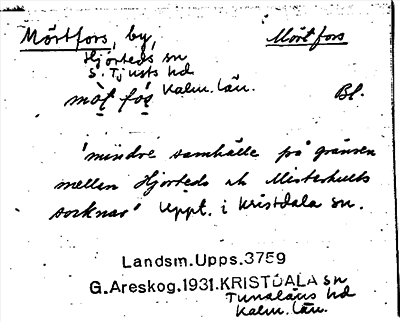 Mörtfors, by, Mörtfors
Hjorteds sn
S. Tjusts hd
Kalm. län.
Bl.
'mindre samhälle på gränsen
mellan Hjorteds och Misterhults
socknar' Uppt. i Kristdala sn.
Landsm.Upps.3759
G.Areskog.1931.KRISTDALA sn
Tunaläns hd
Kalm. län.